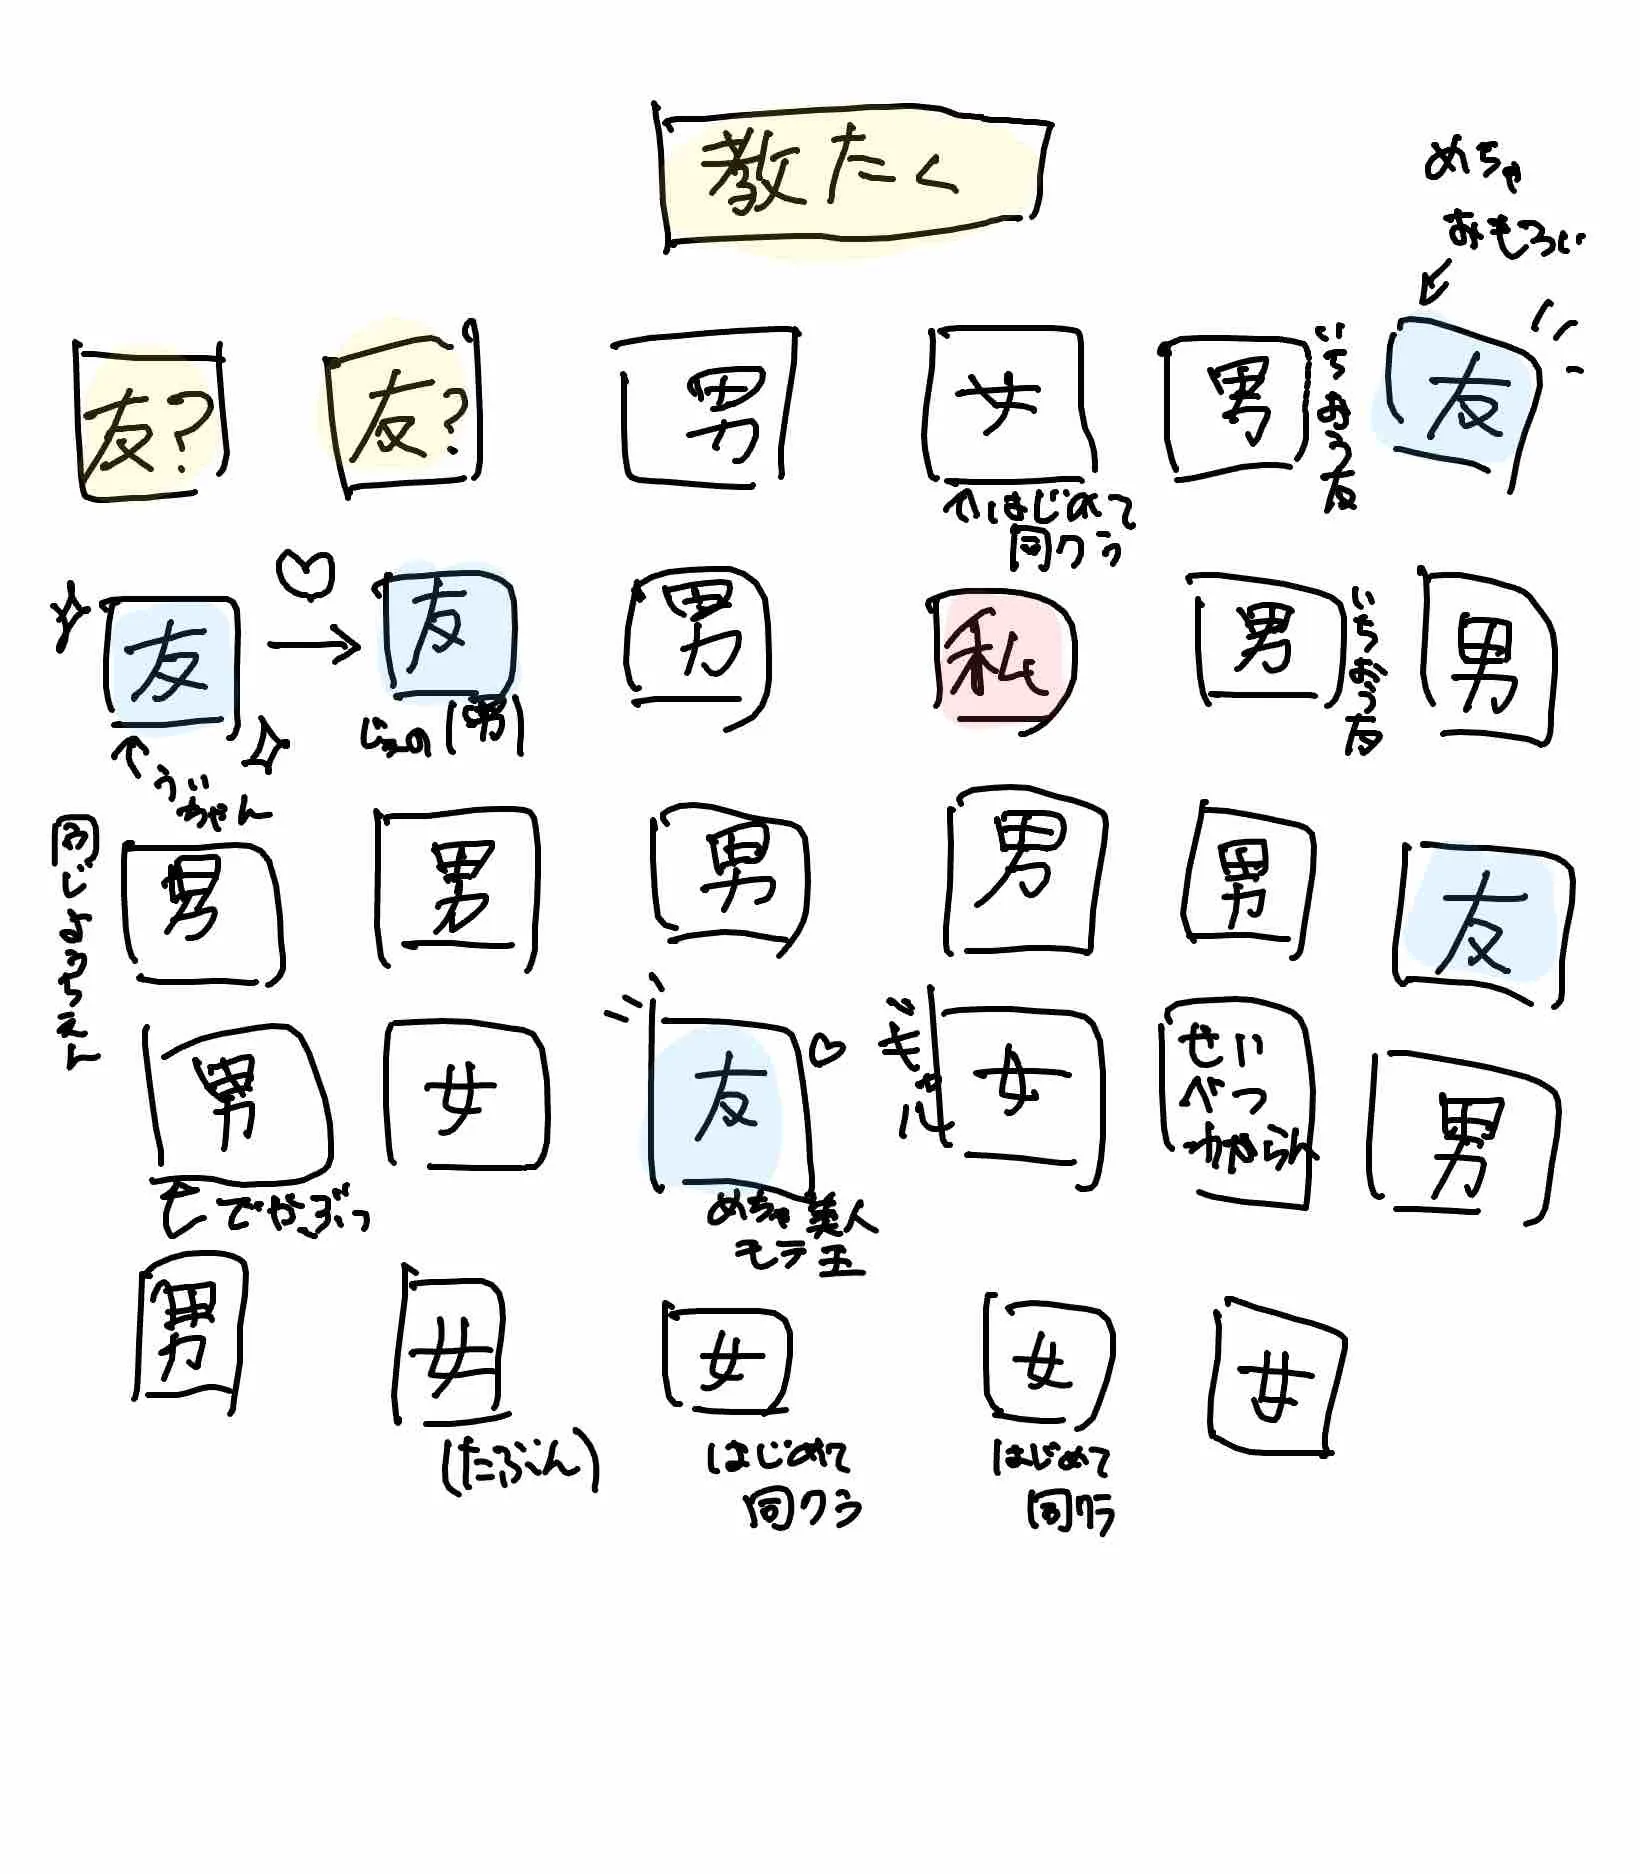 教たく
めちゃ
おもろい
友?
友?
男
女
男
いちおう友
友
↑はじめて
同クラ
友
→
友
男
私
男
いちおう友
男
(男)
↑
うい
ちゃん
同じようちえん
男
男
男
男
男
友
男
女
友
ギャル
女
せい
べつ
わからん
男
でかぶつ
めちゃ美人
モテ王
男
女
女
女
女
(たぶん)
はじめて
同クラ
はじめて
同クラ